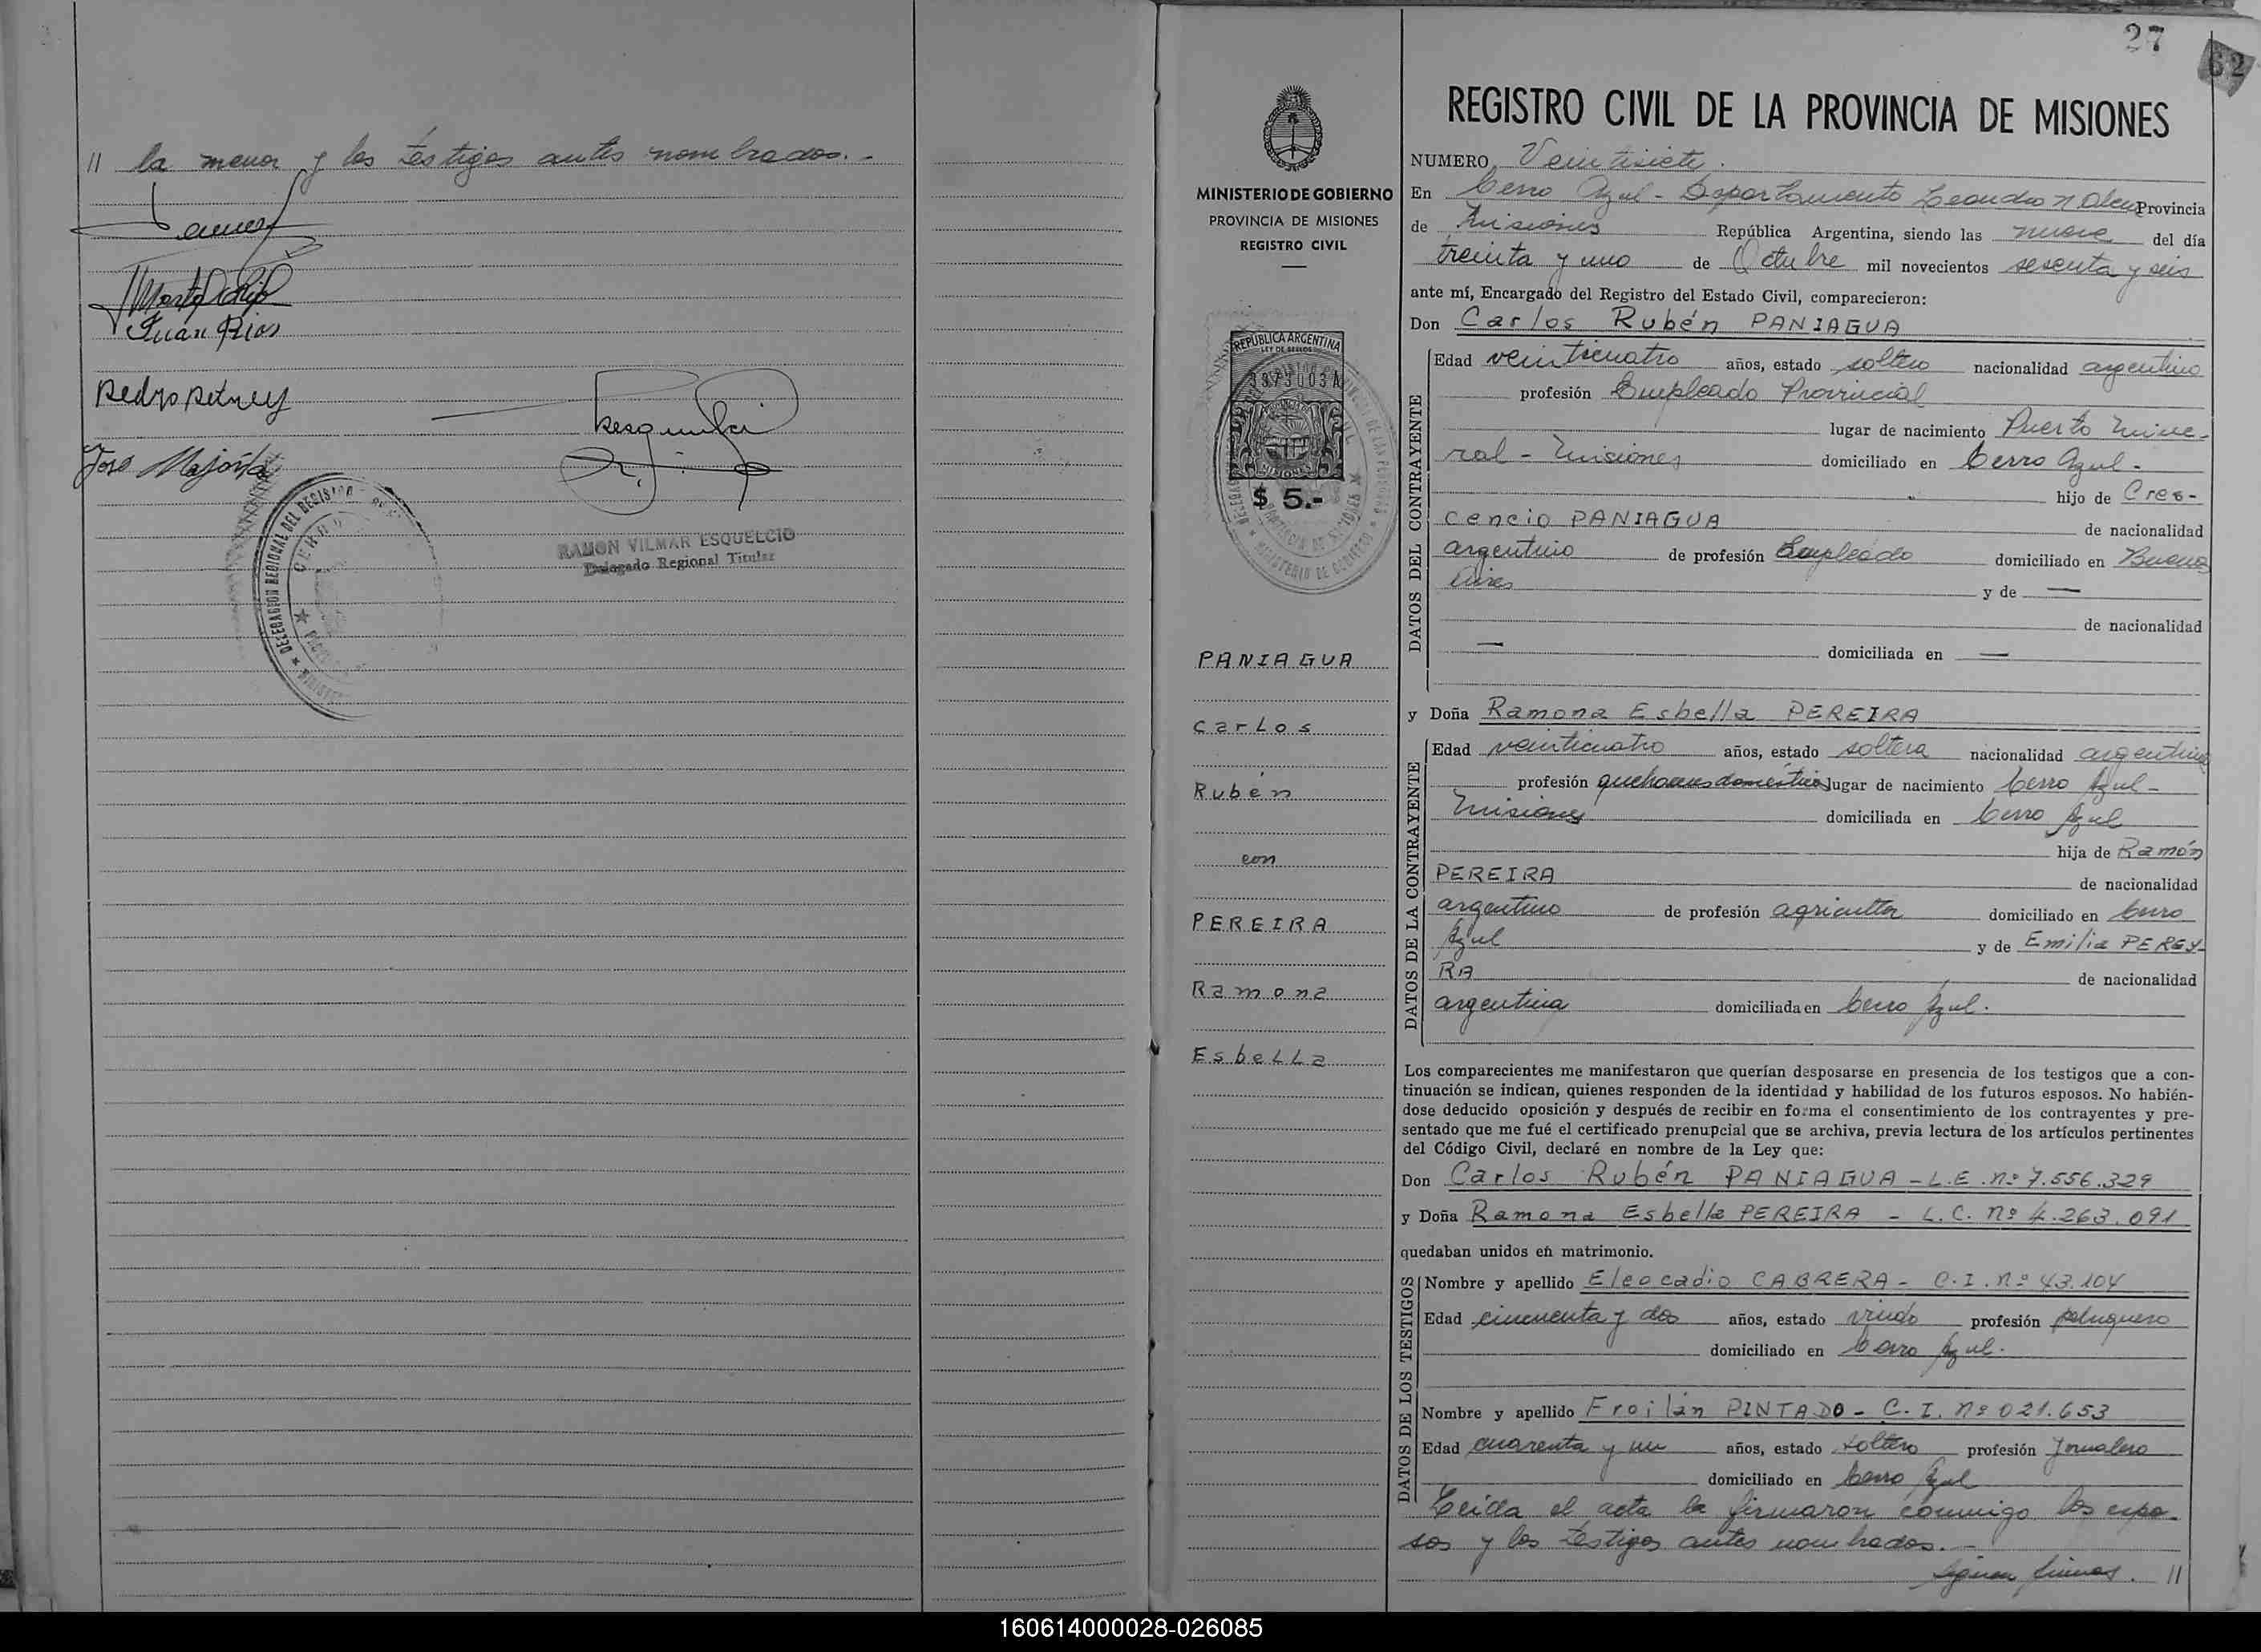 // la menor y los testigos antes nombrados.-
Juan Rios
Pedro
José
RAMON VILMAR ESQUELCIO
Delegado Regional Titular
DELEGACION REGIONAL DEL REGISTRO
27
62
MINISTERIO DE GOBIERNO
PROVINCIA DE MISIONES
REGISTRO CIVIL
REPUBLICA ARGENTINA
LEY DE SELLOS
MISIONES
$ 5.-
PANIAGUA
Carlos
Rubén
con
PEREIRA
Ramona
Esbella
REGISTRO CIVIL DE LA PROVINCIA DE MISIONES
NUMERO Veintisiete.
En Cerro Azul - Departamento Leandro N. Alem Provincia
de Misiones República Argentina, siendo las nueve del día
treinta y uno de Octubre mil novecientos sesenta y seis
ante mí, Encargado del Registro del Estado Civil, comparecieron:
Don Carlos Rubén PANIAGUA
DATOS DEL CONTRAYENTE
Edad veinticuatro años, estado soltero nacionalidad argentino
profesión Empleado Provincial
lugar de nacimiento Puerto Mine-
ral - Misiones domiciliado en Cerro Azul.-
hijo de Cres-
cencio PANIAGUA de nacionalidad
argentino de profesión Empleado domiciliado en Buenos
Aires y de —
de nacionalidad
— domiciliada en —
y Doña Ramona Esbella PEREIRA
DATOS DE LA CONTRAYENTE
Edad veinticuatro años, estado soltera nacionalidad argentina
profesión quehaceres domésticos lugar de nacimiento Cerro Azul -
Misiones domiciliada en Cerro Azul
hija de Ramón
PEREIRA de nacionalidad
argentino de profesión agricultor domiciliado en Cerro
Azul y de Emilia PEREY-
RA de nacionalidad
argentina domiciliada en Cerro Azul.
Los comparecientes me manifestaron que querían desposarse en presencia de los testigos que a con-
tinuación se indican, quienes responden de la identidad y habilidad de los futuros esposos. No habién-
dose deducido oposición y después de recibir en forma el consentimiento de los contrayentes y pre-
sentado que me fué el certificado prenupcial que se archiva, previa lectura de los artículos pertinentes
del Código Civil, declaré en nombre de la Ley que:
Don Carlos Rubén PANIAGUA - L.E. nº 7.556.329
y Doña Ramona Esbella PEREIRA - L.C. nº 4.263.091
quedaban unidos en matrimonio.
DATOS DE LOS TESTIGOS
Nombre y apellido Eleocadio CABRERA - C.I. nº 43.104
Edad cincuenta y dos años, estado viudo profesión peluquero
domiciliado en Cerro Azul.
Nombre y apellido Froilán PINTADO - C.I. nº 021.653
Edad cuarenta y un años, estado soltero profesión Jornalero
domiciliado en Cerro Azul
Leida el acta la firmaron conmigo los espo-
sos y los testigos antes nombrados.-
Siguen firmas. //
160614000028-026085